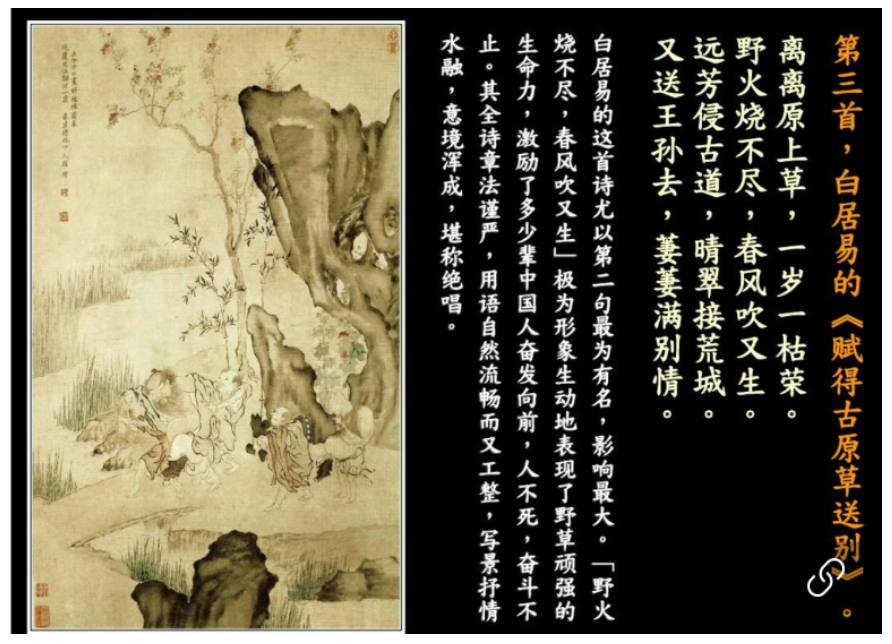 第三首，白居易的《赋得古原草送别》。
离离原上草，一岁一枯荣。
野火烧不尽，春风吹又生。
远芳侵古道，晴翠接荒城。
又送王孙去，萋萋满别情。
白居易的这首诗尤以第二句最为有名，影响最大。「野火
烧不尽，春风吹又生」极为形象生动地表现了野草顽强的
生命力，激励了多少辈中国人奋发向前，人不死，奋斗不
止。其全诗章法谨严，用语自然流畅而又工整，写景抒情
水融，意境浑成，堪称绝唱。